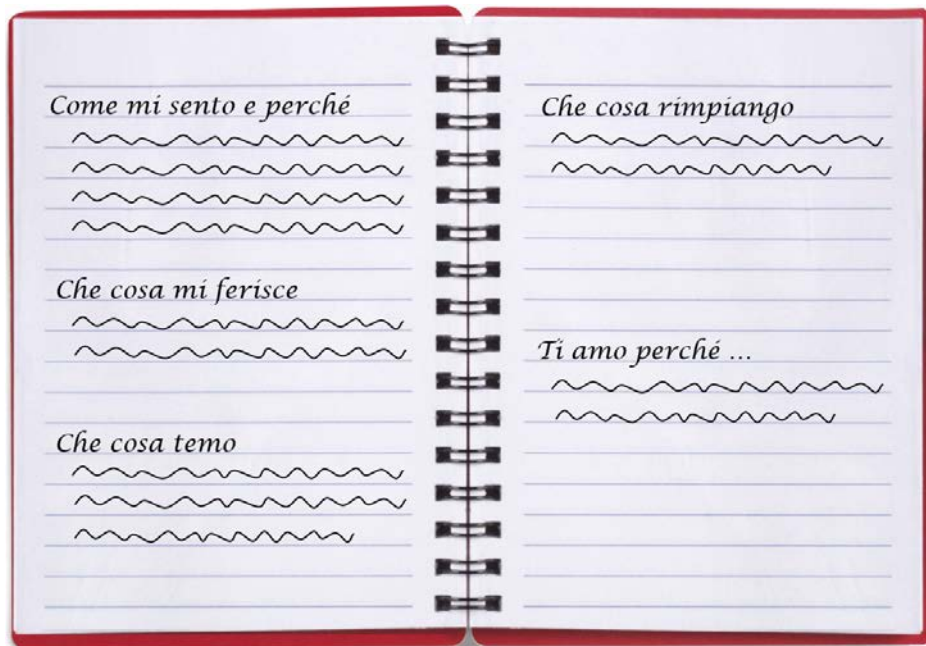 Come mi sento e perché
Che cosa mi ferisce
Che cosa temo
Che cosa rimpiango
Ti amo perché ...